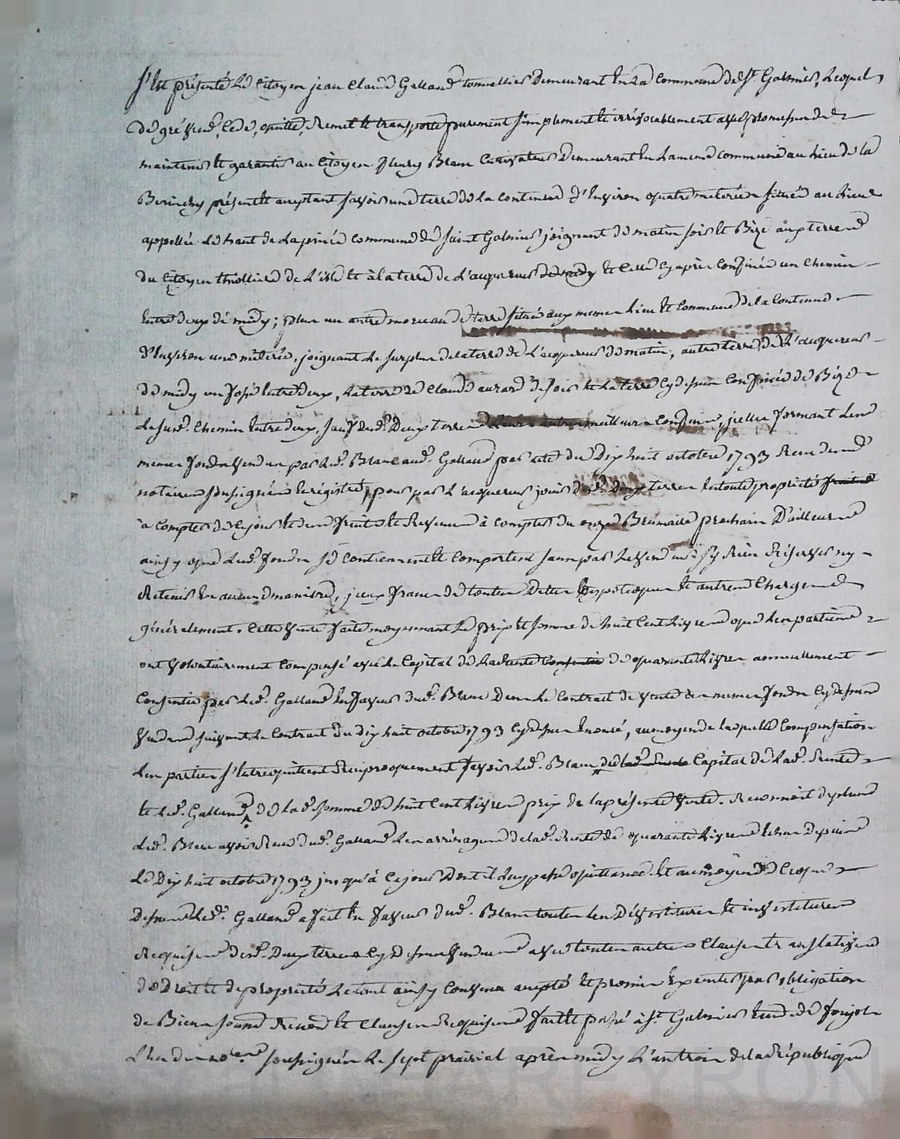 S'est présenté Le Citoyen jean Claude Galland tonnellier Demeurant En La Commune de St. Galmier, Lequel
de gré vend, Cede, quitte, Remet et transporte purement simplement et irrévocablement avec promesse de
maintenir et garantir au Citoyen fleury Blanc Cultivateur Demeurant En La meme Commune au Lieu de La
présent et acceptant savoir une terre de La Contenue d'Environ quatre meterée située au Lieu
appellée Le haut de La Commune de Saint Galmier, joignant de matin soir et Bize aux terres
du Citoyen thiollier de L'isle et à La terre de L'acquereur de midy et Celle Cy après Confinée un Chemin
Entre deux de midy; plus un autre morceau de terre situé aux memes Lieu et Commune de La Contenue
d'Environ une meterée, joignant Le surplus de La terre de L'acquereur de matin, autre terre de L'acquereur
de midy un fossé Entre deux, La terre de Claude de soir et La terre Cy dessus Confinée de Bize
Le susd. Chemin Entre deux, sauf desd. Deux terres meilleurs Confins, jcelles formant Les
memes fonds vendus par Led. Blanc aud. Galland par acte du Dix huit octobre 1793 Recu du
notaire soussigné Enregistré, pour par L'acquereur jouir desd. Deux terres En toute proprieté
a Compter de Ce jour et des fruits et Revenus à Compter du onze Brumaire prochain D'ailleurs
ainsy que Led. fonds se Contiennent et Comportent sans par Le Vendeur s'y Rien Réserver ny
Retenir En aucune maniere, jceux francs de toutes Dettes hypoteques et autres Charges
généralement. Cette Vente faite moyennant Le prix et somme de huit Cent Livres que Les parties
ont volontairement Compensé avec Le Capital de La Rente de quarante Livres annuellement
Consentie par Led. Galland En faveur dud. Blanc Dans Le Contrat de Vente des memes fonds Cy dessus
Vendus suivant Le Contrat du dix huit octobre 1793 Cy dessus Enoncé, au moyen de Laquelle Compensation
Les parties s'Entrequittent Reciproquement savoir Led. Blanc du Capital de Lad. Rente
et Led. Galland de Lad. somme de huit Cent Livres prix de La présente Vente. Reconnoit de plus
Led. Blanc avoir Recu dud. Galland Les arrérages de Lad. Rente de quarante Livres Echus depuis
Le Dix huit octobre 1793 jusqu'à Ce jour Dont il Luy passe quittance. Et au moyen de Ce que
Dessus Led. Galland a fait En faveur dud. Blanc toutes Les Dévestitures et investitures
Requises desd. Deux terres Cy Dessus Vendues avec toutes autres Clauses translatives
de Droit et de propriété Le tout ainsy Convenu accepté et promis Executer par obligation
de Biens soumis Renoncé et Clauses Requises fait et passé à St. Galmier Etude de
L'un des nores soussignés Le sept prairial après midy L'an trois de La République